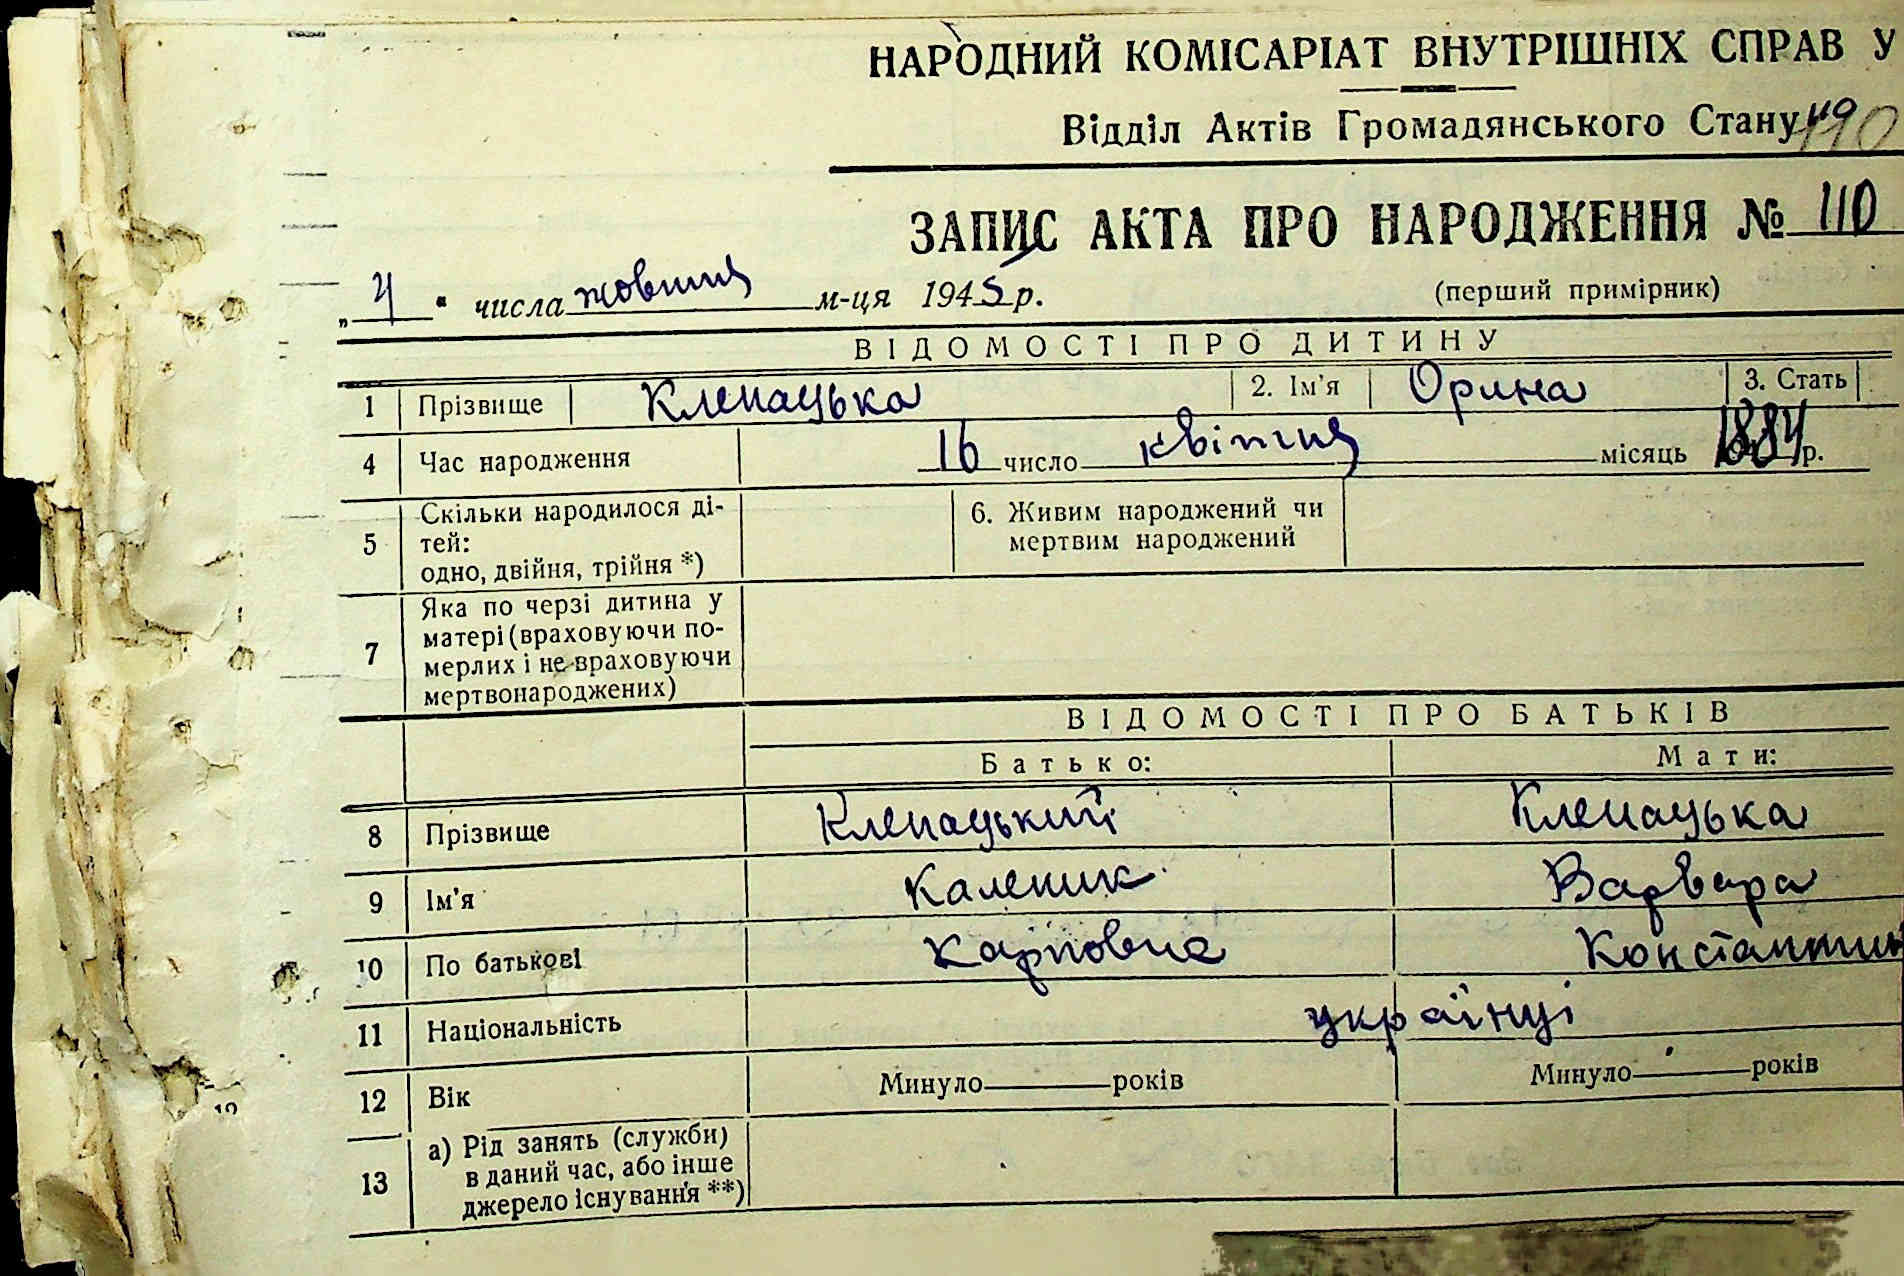 НАРОДНИЙ КОМІСАРІАТ ВНУТРІШНІХ СПРАВ У
Відділ Актів Громадянського Стану
110
ЗАПИС АКТА ПРО НАРОДЖЕННЯ № 110
„ 4 “ числа жовтня м-ця 1945 р. (перший примірник)
ВІДОМОСТІ ПРО ДИТИНУ
1 Прізвище Клепацька 2. Ім'я Орина 3. Стать
4 Час народження 16 число квітня місяць 1884 р.
5 Скільки народилося ді-
тей:
одно, двійня, трійня *)
6. Живим народжений чи
мертвим народжений
7 Яка по черзі дитина у
матері (враховуючи по-
мерлих і не враховуючи
мертвонароджених)
ВІДОМОСТІ ПРО БАТЬКІВ
Батько: Мати:
8 Прізвище Клепацький Клепацька
9 Ім'я Каленик Варвара
10 По батькові Карпович Константин
11 Національність українці
12 Вік Минуло років Минуло років
13 а) Рід занять (служби)
в даний час, або інше
джерело існування **)